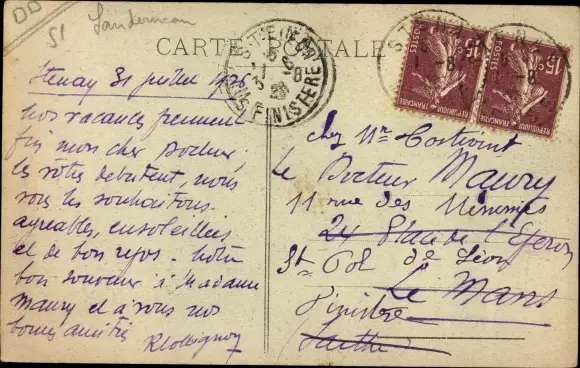 51
CARTE POSTALE
FINISTÈRE
15c POSTES REPUBLIQUE FRANCAISE
15c POSTES REPUBLIQUE FRANCAISE
Stenay 31 juillet 1926
Nos vacances prennent
fin mon cher Docteur,
les vôtres débutent, nous
vous les souhaitons
agréables, ensoleillées
et de bon repos. Notre
bon souvenir à Madame
Maury et à vous nos
bonnes amitiés
chez Mr
Le Docteur Maury
11 rue des Minimes
24 Place de l'Eperon
St Pol de Léon
Le Mans
Finistère
Sarthe